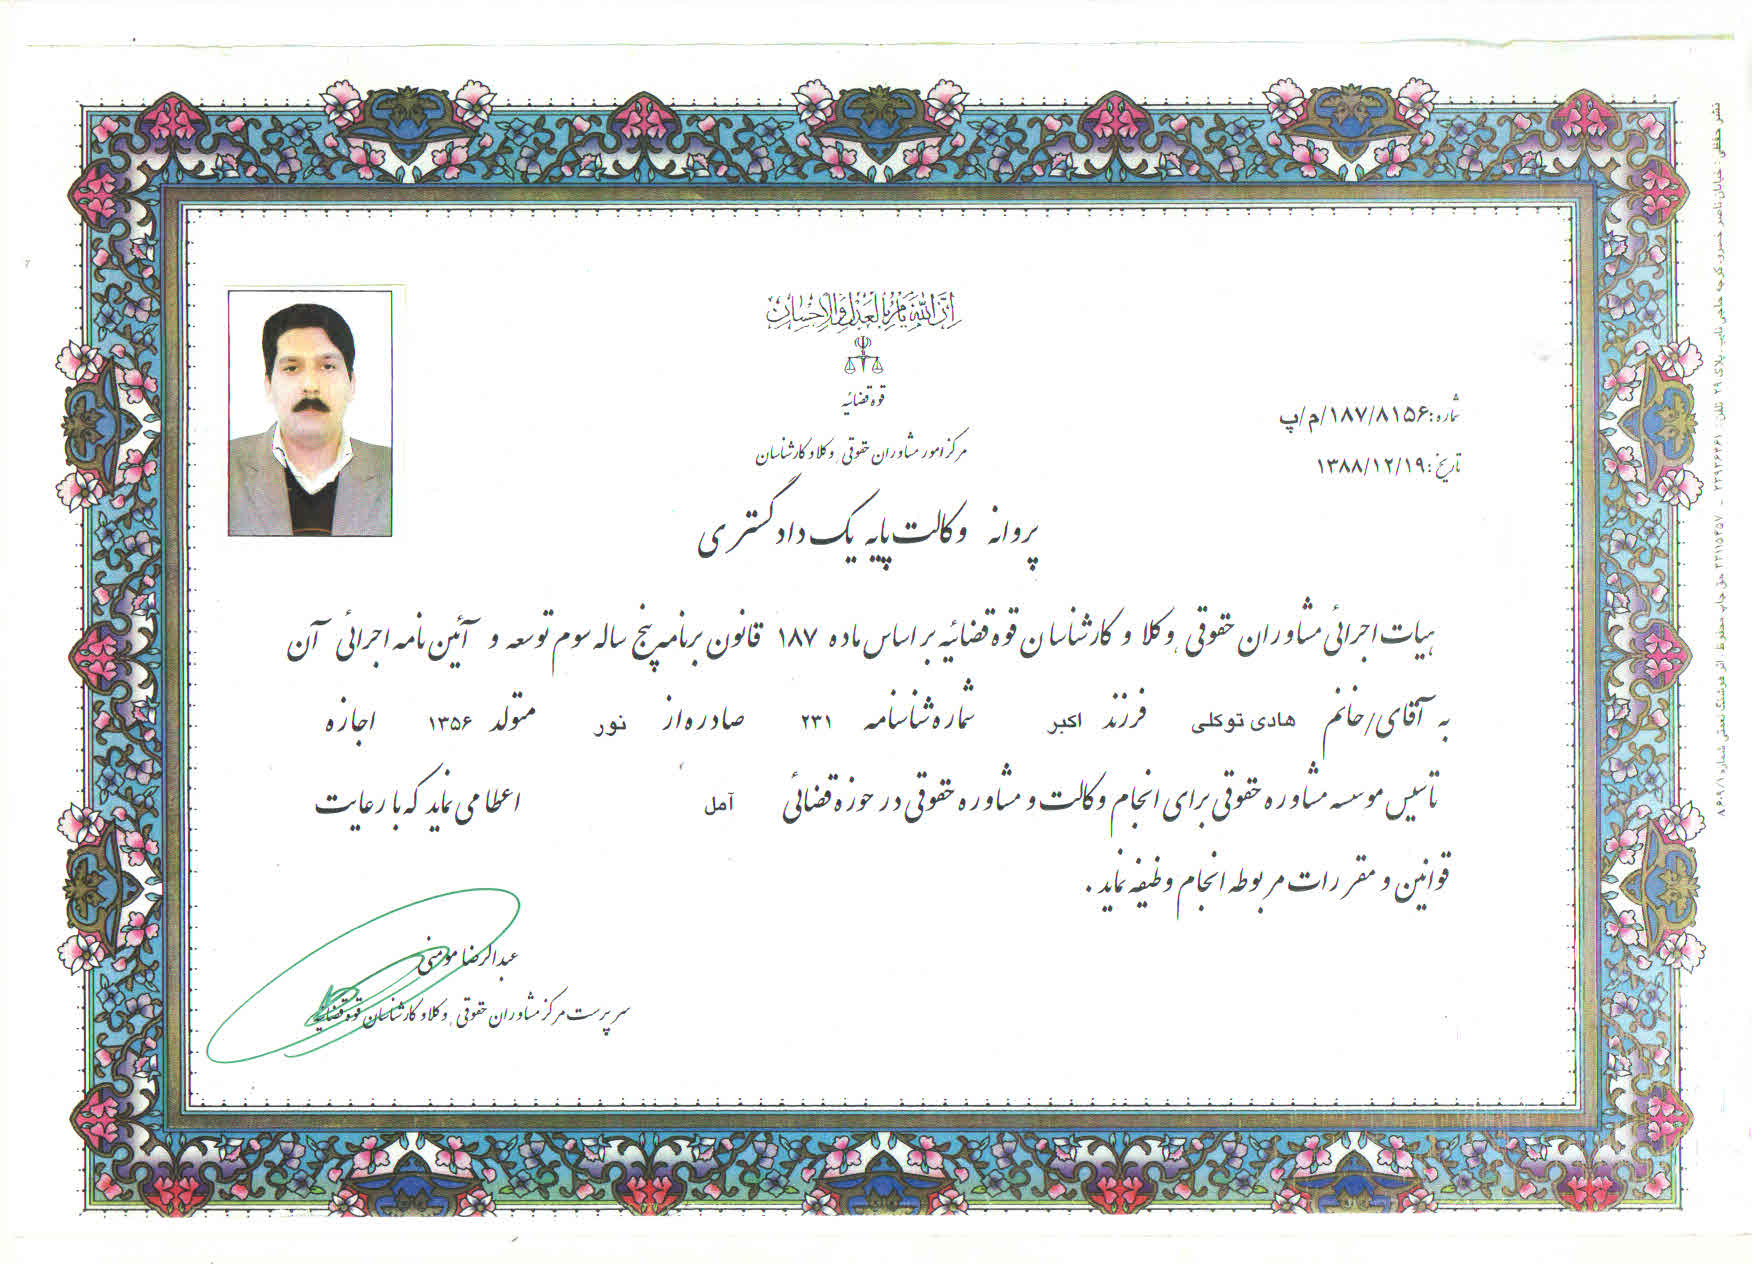 ان الله یامر بالعدل والاحسان
قوه قضائیه
مرکز امور مشاوران حقوقی، وکلا و کارشناسان
شماره: ۱۸۷/۸۱۵۶/م/پ
تاریخ: ۱۳۸۸/۱۲/۱۹
پروانه وکالت پایه یک دادگستری
هیات اجرائی مشاوران حقوقی، وکلا و کارشناسان قوه قضائیه بر اساس ماده ۱۸۷ قانون برنامه پنج ساله سوم توسعه و آئین نامه اجرائی آن
به آقای/خانم هادی توکلی فرزند اکبر شماره شناسنامه ۲۳۱ صادره از نور متولد ۱۳۵۶ اجازه
تاسیس موسسه مشاوره حقوقی برای انجام وکالت و مشاوره حقوقی در حوزه قضائی آمل اعطا می نماید که با رعایت
قوانین و مقررات مربوطه انجام وظیفه نماید.
عبدالرضا مومنی
سرپرست مرکز مشاوران حقوقی، وکلا و کارشناسان قوه قضائیه
نشر حفظی: خیابان ناصر خسرو، کوچه حاجی نایب، پلاک ۲۹ تلفن: